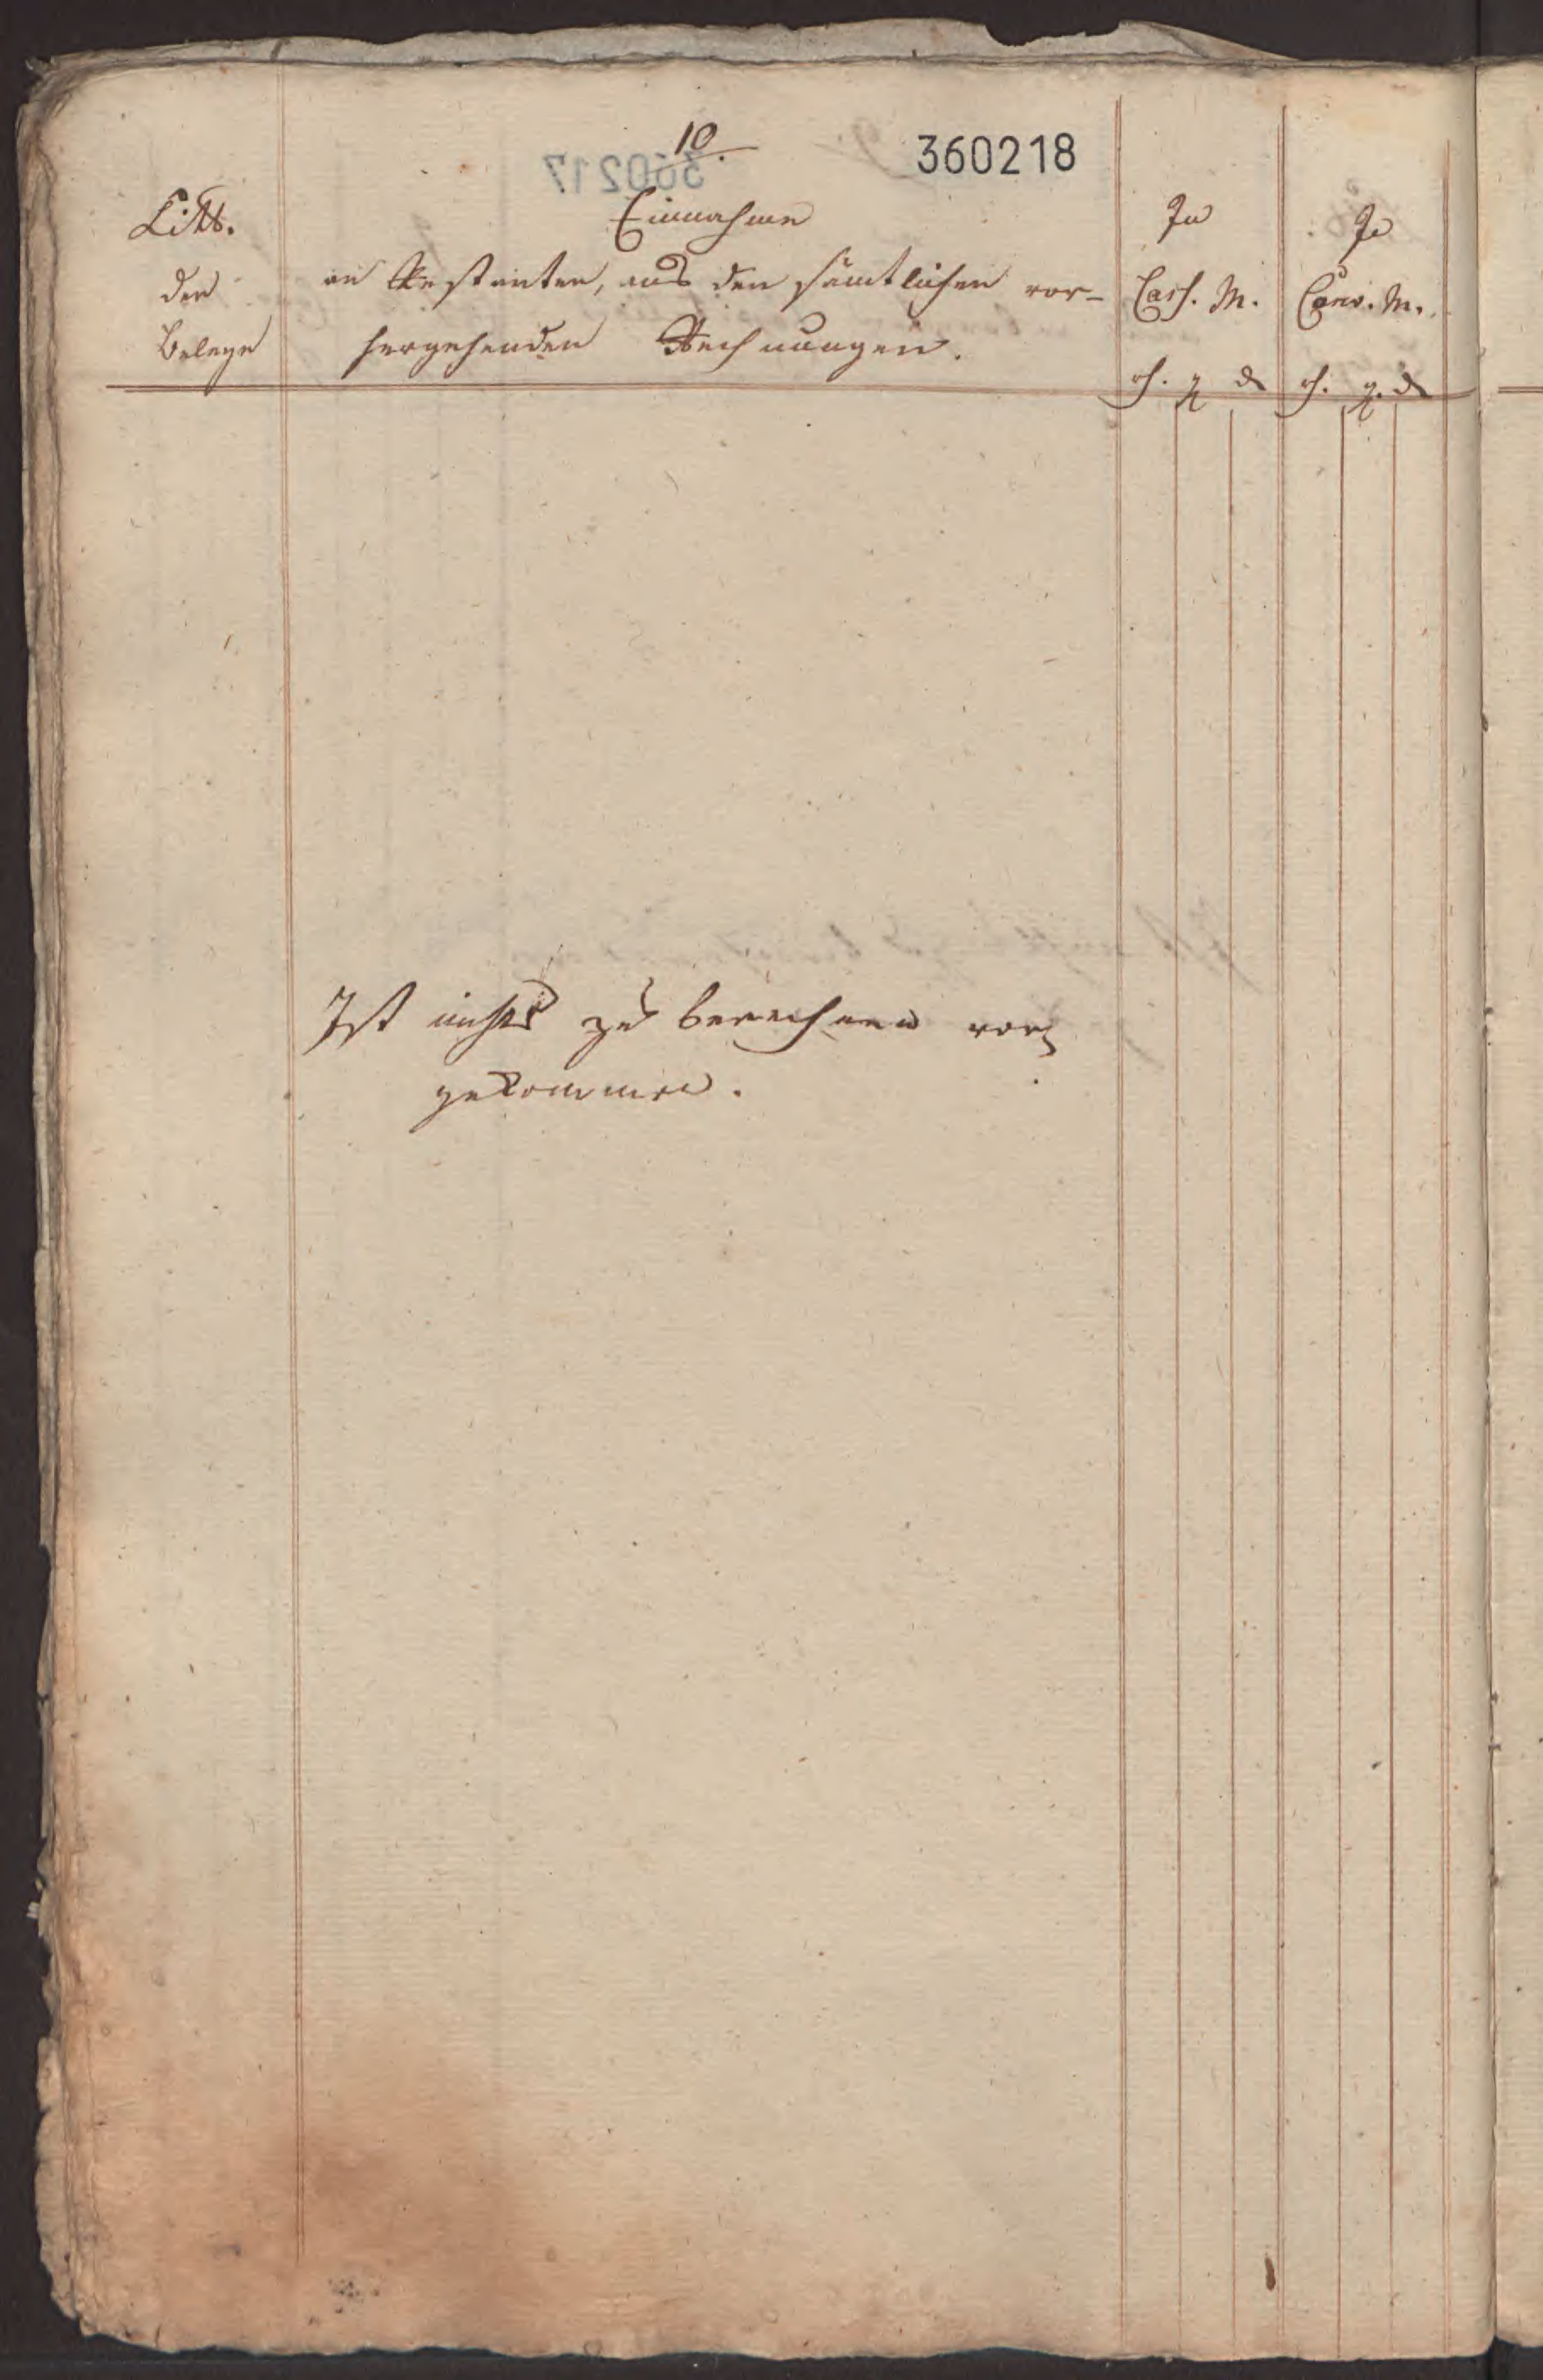 10.
360218
Litt.
der
Belege
Einnahme
an Restanten, aus den sämtlichen vor-
hergehenden Rechnungen.
In
Cass. M.
rh. g d
In
Conv. M.
rh. g. d
Ist nichts zu berechnen vor-
gekommen.